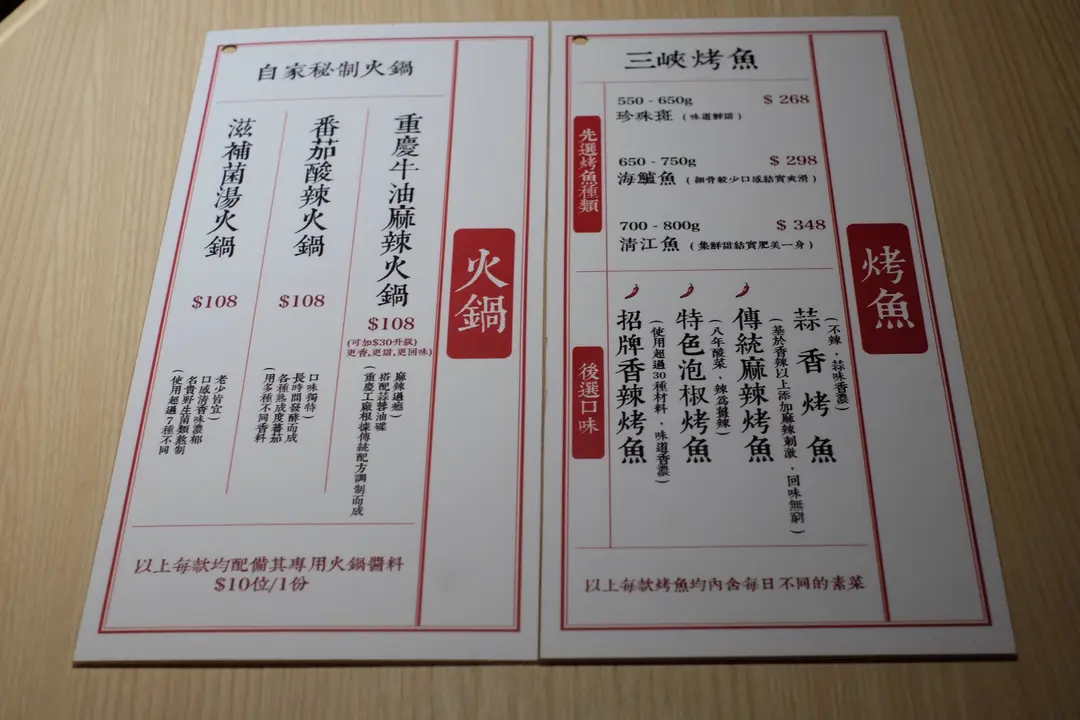 自家秘制火鍋
火鍋
重慶牛油麻辣火鍋
$108
(可加$30升級)
更香,更甜,更回味)
麻辣過癮)
搭配蒜蓉油碟
(重慶工廠根據傳統配方調制而成
番茄酸辣火鍋
$108
口味獨特)
長時間發酵而成
各種熟成度蕃茄
(用多種不同香料
滋補菌湯火鍋
$108
老少皆宜)
口感清香味濃郁
名貴野生菌類熬制
(使用超過7種不同
以上每款均配備其專用火鍋醬料
$10位/1份
三峽烤魚
烤魚
先選烤魚種類
550 - 650g $ 268
珍珠斑 (味道鮮甜)
650 - 750g $ 298
海鱸魚 (細骨較少口感結實爽滑)
700 - 800g $ 348
清江魚 (集鮮甜結實肥美一身)
後選口味
蒜香烤魚
(不辣,蒜味香濃)
傳統麻辣烤魚
(基於香辣以上添加麻辣刺激,回味無窮)
特色泡椒烤魚
(八年酸菜,辣為醬辣)
招牌香辣烤魚
(使用超過30種材料,味道香濃)
以上每款烤魚均內含每日不同的素菜